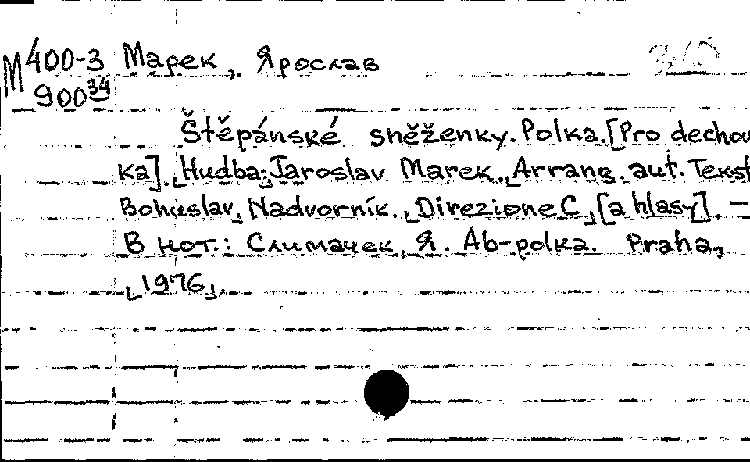 М400-3 Марек, Ярослав
900 34
Štěpánské sněženky. Polka. [Pro dechov
ka]. Hudba: Jaroslav Marek. Arrang. aut. Tekst
Bohuslav Nadvorník. Direzione C, [a hlasy]. —
В нот.: Слимачек, Я. Ab-polka. Praha,
1976.